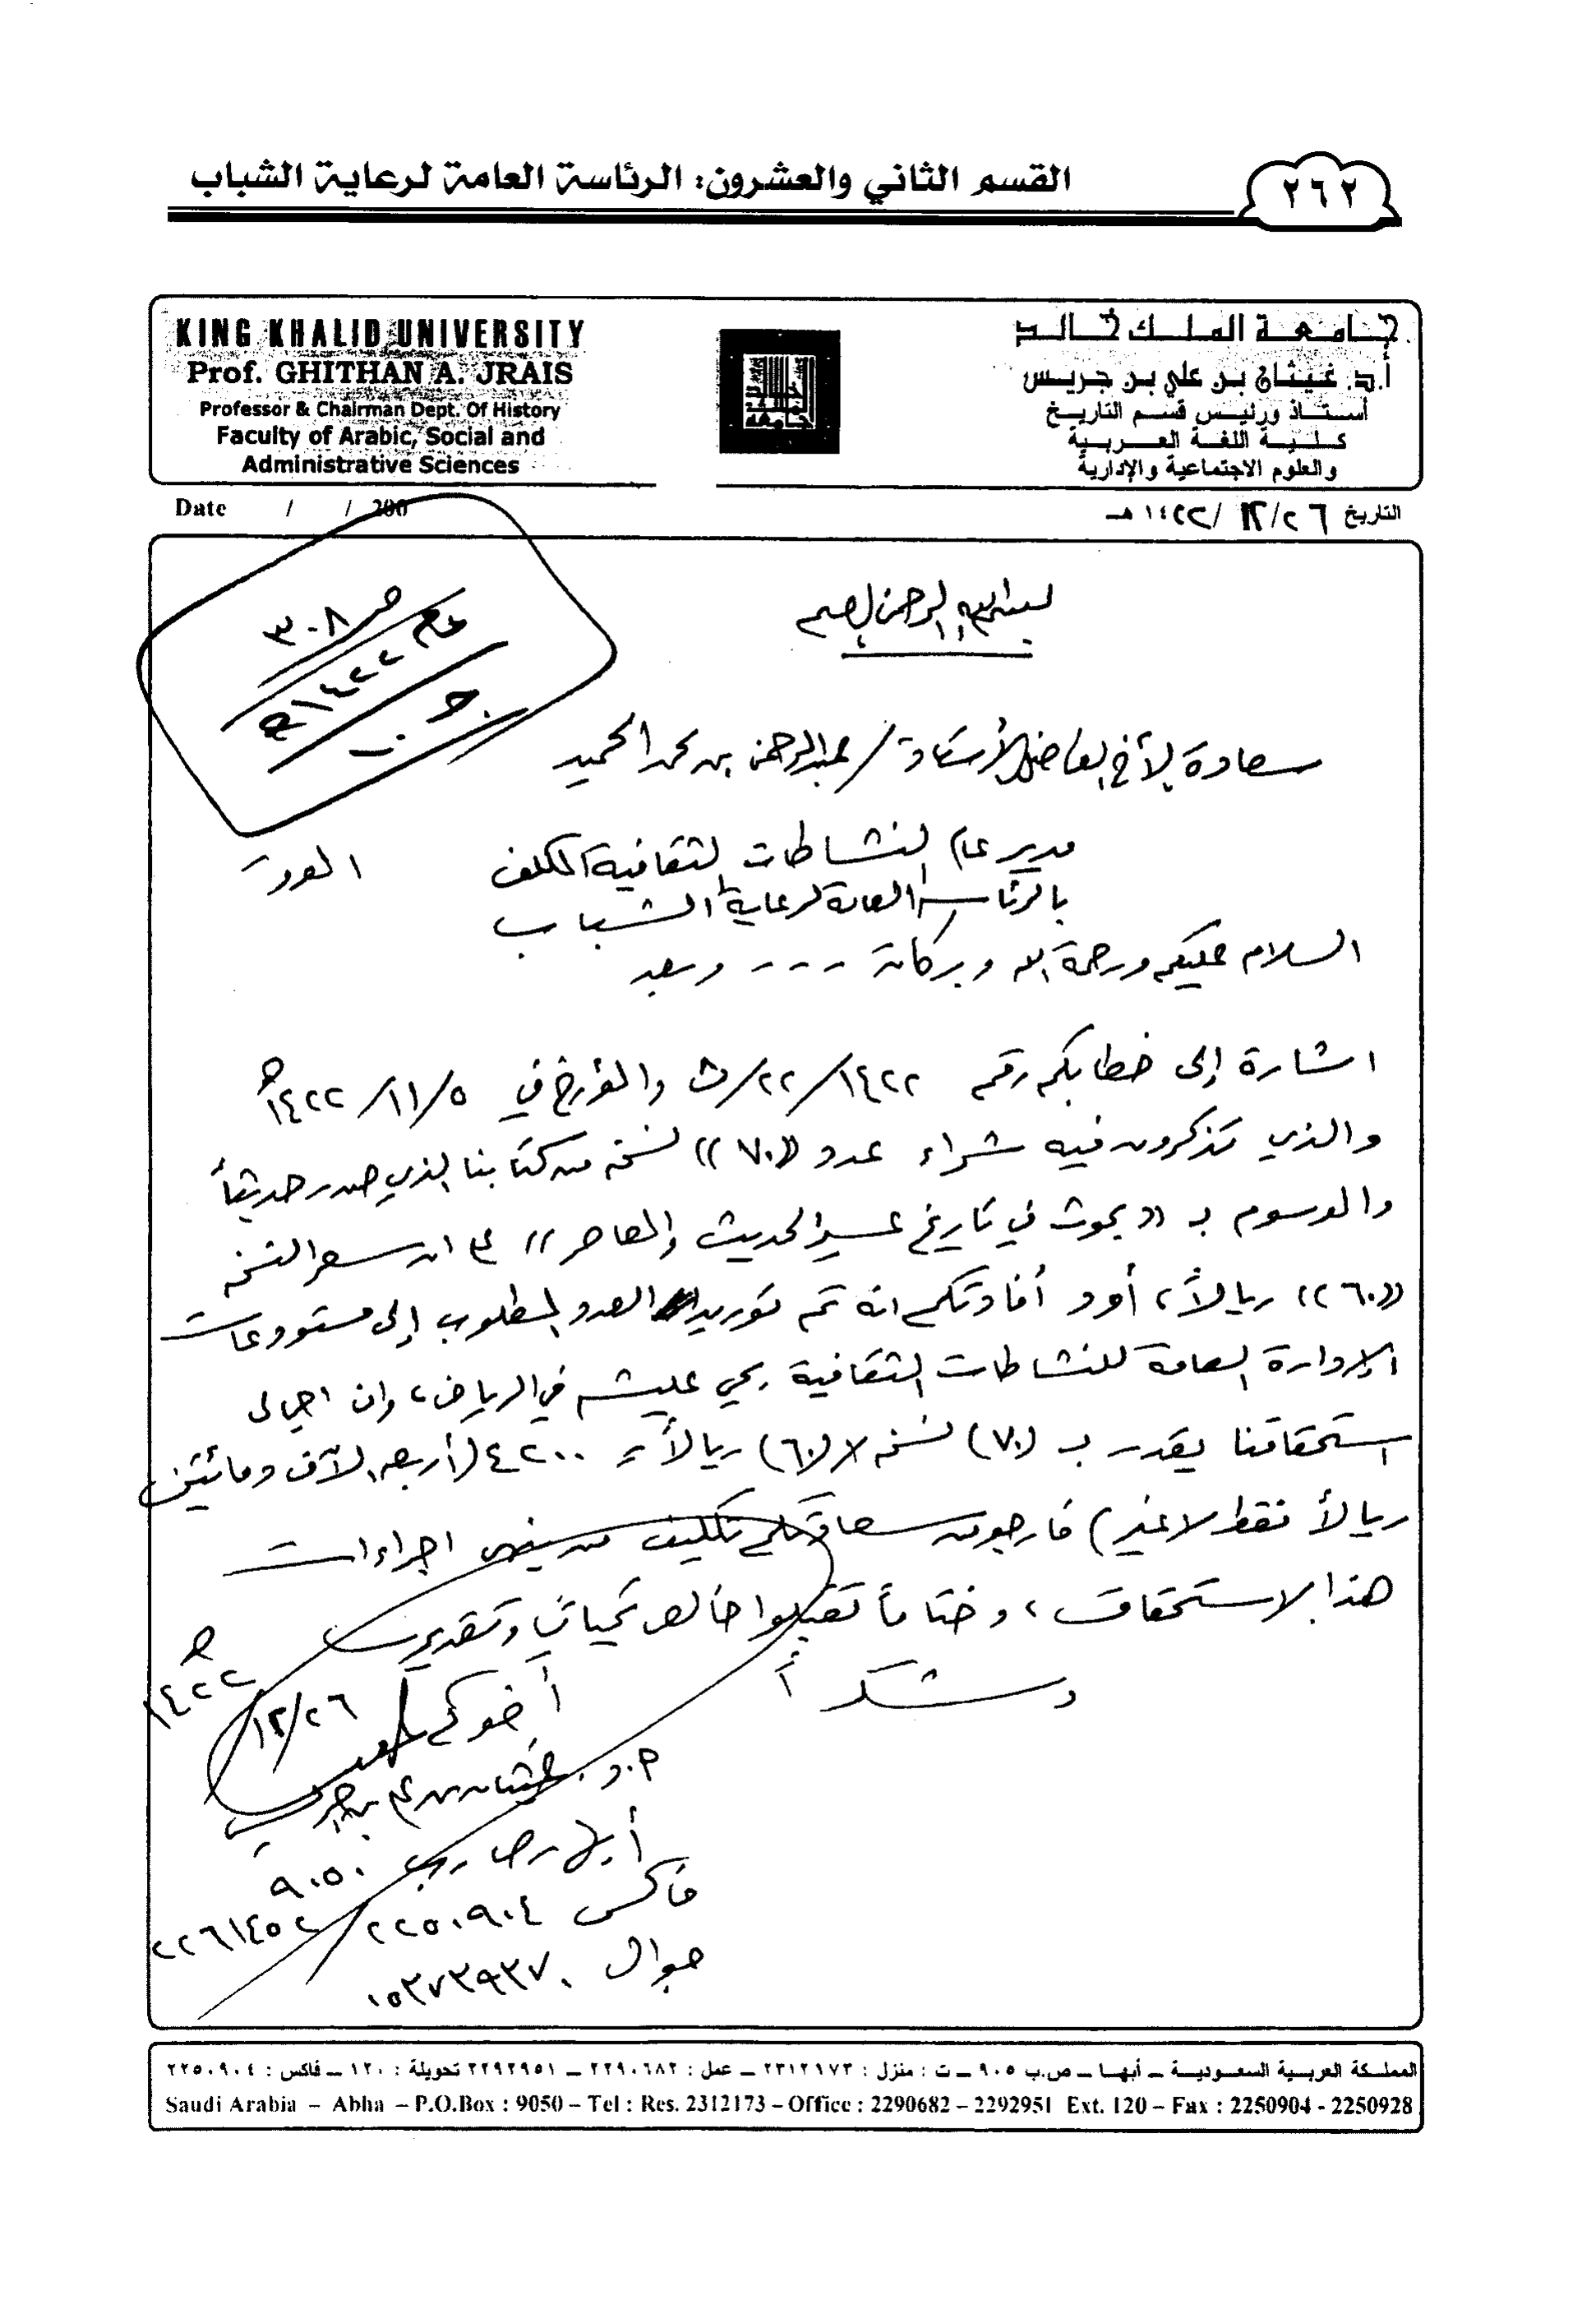 القسم الثاني والعشرون: الرئاسة العامة لرعاية الشباب
٢٦٢
KING KHALID UNIVERSITY
Prof. GHITHAN A. JRAIS
Professor & Chairman Dept. Of History
Faculty of Arabic, Social and
Administrative Sciences
جامعة الملك خالد
أ.د. غيثان بن علي بن جريس
أستاذ ورئيس قسم التاريخ
كلية اللغة العربية
والعلوم الاجتماعية والإدارية
Date / / 200
التاريخ ٢٦/١٢/١٤٢٢هـ
ص ٣٠٨
عام ١٤٢٢هـ
بسم الله الرحمن الرحيم
سعادة الأخ الفاضل الأستاذ/ عبدالرحمن بن محمد الحميد
مدير عام النشاطات الثقافية المكلف
الموقر
بالرئاسة العامة لرعاية الشباب
السلام عليكم ورحمة الله وبركاته - - - - وبعد
اشارة إلى خطابكم رقم ١٤٢٢/٢٢/ث والمؤرخ في ٥/١١/١٤٢٢هـ
والذي تذكرون فيه شراء عدد ((٧٠)) نسخة من كتابنا الذي صدر حديثاً
والموسوم بـ ((بحوث في تاريخ عسير الحديث والمعاصر)) على ان سعر النسخة
((٦٠)) ريالاً، أود أفادتكم انه تم توريد العدد المطلوب إلى مستودعات
الإدارة العامة للنشاطات الثقافية بحي عليشه في الرياض، وان اجمالى
استحقاقنا يقدر بـ (٧٠) نسخة × (٦٠) ريالاً = ٤٢٠٠ (أربعه الآف ومائتين
ريالاً فقط لاغير) فارجو من سعادتكم تكليف من ينهى اجراءات
هذا الاستحقاق، وختاماً تقبلوا خالص تحياتي وتقديري
وشكراً
أخوكم
٢٦/١٢/١٤٢٢هـ
أ.د. غيثان بن علي بن جريس
أبها ص.ب ٩٠٥٠
فاكس ٢٢٥٠٩٠٤/٢٢٦١٤٥٢
جوال ٠٥٣٧٣٩٣٧٠
المملكة العربية السعودية ــ أبهـا ــ ص.ب ٩٠٥ ــ ت : منزل : ٢٣١٢١٧٣ ــ عمل : ٢٢٩٠٦٨٢ ــ ٢٢٩٢٩٥١ تحويلة : ١٢٠ ــ فاكس : ٢٢٥٠٩٠٤
Saudi Arabia – Abha – P.O.Box : 9050 – Tel : Res. 2312173 – Office : 2290682 – 2292951 Ext. 120 – Fax : 2250904 - 2250928